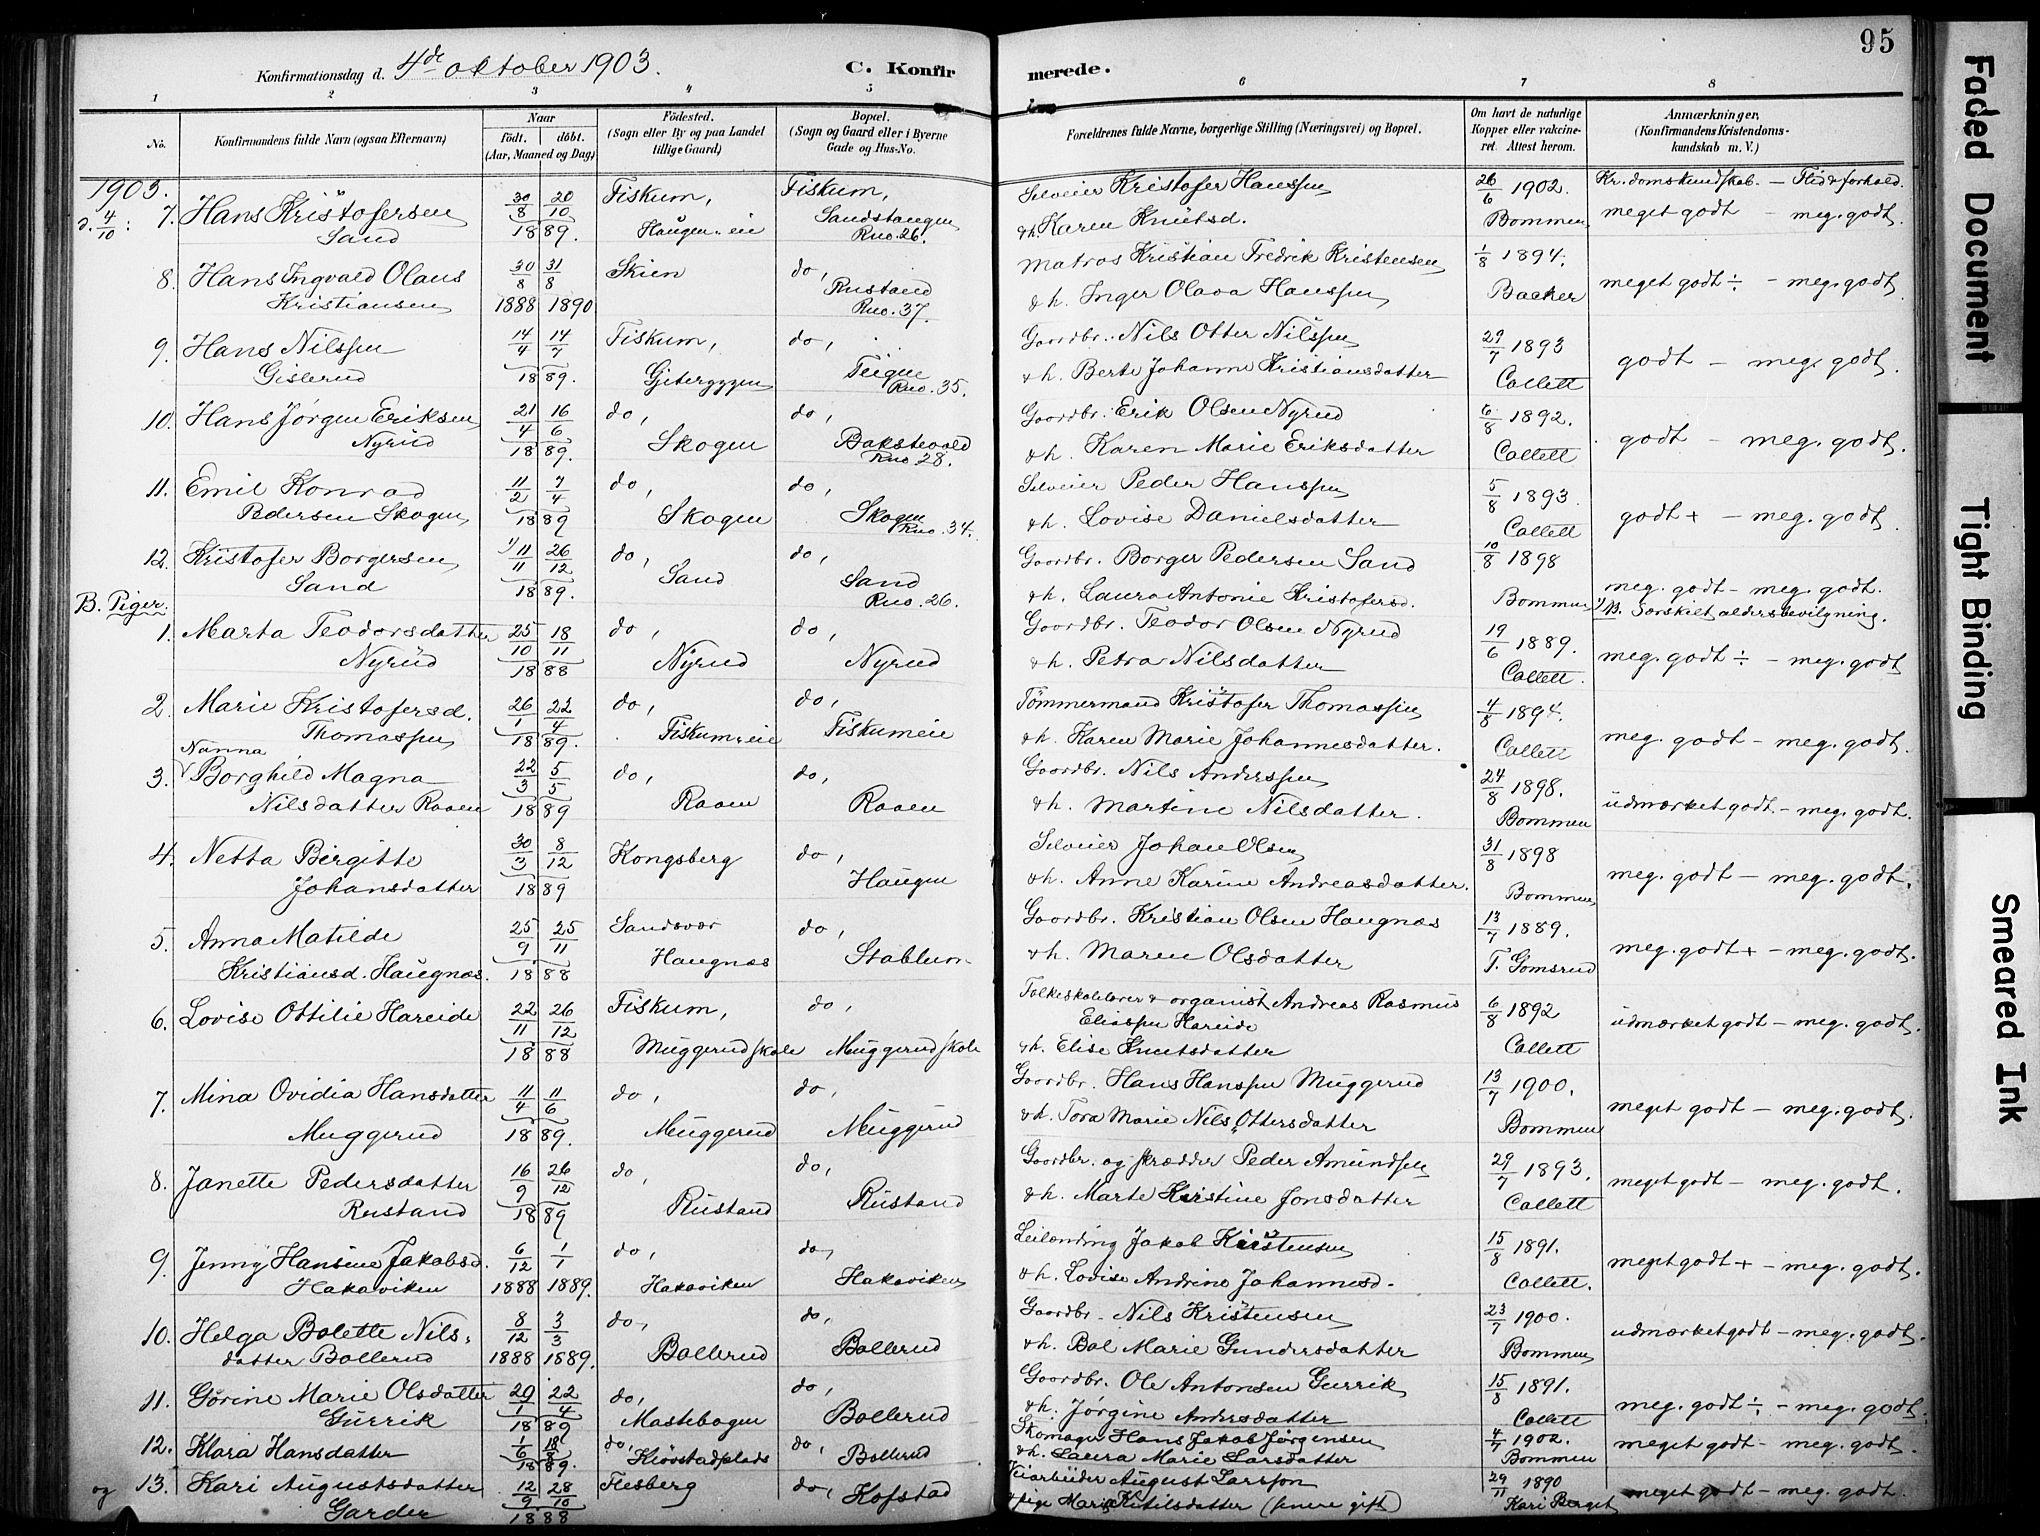 95
Konfirmationsdag d. 4de oktober 1903. C. Konfir merede.
1 2 3 4 5 6 7 8
No. Konfirmandens fulde Navn (ogsaa Efternavn) Naar født. døbt. (Aar, Maaned og Dag) Fødested. (Sogn eller By og paa Landet tillige Gaard) Bopæl. (Sogn og Gaard eller i Byerne Gade og Hus-No. Forældrenes fulde Navne, borgerlige Stilling (Næringsvei) og Bopæl. Om havt de naturlige Kopper eller vakcineret. Attest herom. Anmærkninger, (Konfirmandens Kristendomskundskab m. V.)
1903. d. 4/10:
7. Hans Kristofersen 30/8 20/10 Fiskum, Fiskum, Selveier Kristofer Hanssen 26/6 1902. Kr.domskundskab. — Flid & forhold.
Sand 1889. Haugen-eie Sandstangen Rno. 26. & h. Karen Knutsd. Bommen meget godt — meg. godt
8. Hans Ingvald Olaus 30/8 31/8 Skien do, Matros Kristian Fredrik Kristensen 1/8 1894.
Kristiansen 1888 1890 Rustand Rno. 37. & h. Inger Olava Hanssen Backer meget godt ÷ — meg. godt
9. Hans Nilssen 14/4 14/7 Fiskum, do, Gaardbr. Nils Otter Nilssen 29/7 1893
Gislerud 1889. Gjeteryggen Teigen Rno. 35. & h. Berte Johanne Kristiansdatter Collett godt — meg. godt.
10. Hans Jørgen Eriksen 21/4 16/6 do, do, Gaardbr. Erik Olsen Nyrud 6/8 1892.
Nyrud 1889. Skogen Bakstevold Rno 28. & h. Karen Marie Eriksdatter Collett godt — meg. godt.
11. Emil Konrad 11/2 7/4 do, do, Selveier Peder Hanssen 5/8 1893.
Pedersen Skogen 1889 Skogen Skogen Rno. 34. & h. Lovise Danielsdatter Collett godt + — meg. godt
12. Kristofer Borgersen 1) 11/11 26/12 do, do, Gaardbr. Borger Pedersen Sand 10/8 1898
Sand 1889. Sand Sand Rno. 26. & h. Laura Antonie Kristofersd. Bommen meg. godt — meg. godt.
1) NB. Særskilt aldersbevilgning.
B. Piger.
1. Marta Teodorsdatter 25/10 18/11 do, do, Gaardbr. Teodor Olsen Nyrud 19/6 1889.
Nyrud 1888 Nyrud Nyrud & h. Petra Nilsdatter Collett. meg. godt ÷ — meg. godt
2. Marie Kristofersd. 26/1 22/4 do, do, Tømmermand Kristofer Thomassen 4/8 1894.
Thomassen 1889. Fiskum-eie Fiskumeie & h. Karen Marie Johannesdatter. Collett meg. godt — meg. godt.
Nanna
3. Borghild Magna 22/3 5/5 do, do, Gaardbr. Nils Anderssen 24/8 1898.
Nilsdatter Raaen 1889 Raaen Raaen & h. Martine Nilsdatter. Bommen udmærket godt — meg. godt.
4. Netta Birgitte 30/3 8/12 Kongsberg do, Selveier Johan Olsen 31/8 1898
Johansdatter 1889 Haugen & h. Anne Karine Andreasdatter. Bommen meg. godt — meg. godt.
5. Anna Matilde 25/9 25/11 Sandsvær do, Gaardbr. Kristian Olsen Haugnæs 13/7 1889.
Kristiansd. Haugnæs. 1888 Haugnæs Stablum & h. Maren Olsdatter T. Gomsrud meg. godt + — meg. godt.
6. Lovise Ottilie Hareide 22/11 26/12 Fiskum, do, Folkeskolelærer & organist Andreas Rasmus Eliassen Hareide 6/8 1892
1888 Muggerud skole Muggerud skole & h. Elise Knutsdatter Collett udmærket godt — meg. godt.
7. Mina Ovidia Hansdatter 11/4 11/6 do, do, Gaardbr. Hans Hanssen Muggerud 13/7 1900.
Muggerud 1889. Muggerud Muggerud & h. Tora Marie Nils Ottersdatter Bommen meget godt — meg. godt.
8. Janette Pedersdatter 16/9 26/12 do, do, Gaardbr. og skrædder Peder Amundsen 29/7 1893.
Rustand 1889 Rustand Rustand & h. Marte Kirstine Jonsdatter Collett meget godt — meg. godt.
9. Jenny Hansine Jakobsd. 6/12 1/1 do, do, Leilænding Jakob Kristensen 15/8 1891.
Hakaviken 1888 1889. Hakaviken Hakaviken & h. Lovise Andrine Johannesd. Collett. meget godt + — meg. godt.
10. Helga Bolette Nils- 8/12 3/3 do, do, Gaardbr. Nils Kristensen 23/7 1900.
datter Bollerud 1888 1889. Bollerud Bollerud & h. Bol Marie Gundersdatter Bommen udmærket godt — meg. godt.
11. Gørine Marie Olsdatter 29/1 22/4 do, do, Gaardbr. Ole Antonsen Gurrik 15/8 1891.
Gurrik 1889 Mastebogen Bollerud & h. Jørgine Andersdatter Collett meg. godt ÷ — meg. godt.
12. Klara Hansdatter 1/6 18/8 1889. do, Kjørstadplads do, Bollerud Skomager Hans Jakob Jørgensen & h. Laura Marie Larsdatter 4/7 1902. Bommen meget godt — meg. godt.
og 13. Kari Augustsdatter 12/9 28/10 Flesberg do, Kofstad Veiarbeider August Larsson 29/11 1890
Garder 1888 & pige Marie Ketilsdatter (senere gift) Kari Berget meget godt — meg. godt.
Faded Document
Tight Binding
Smeared Ink